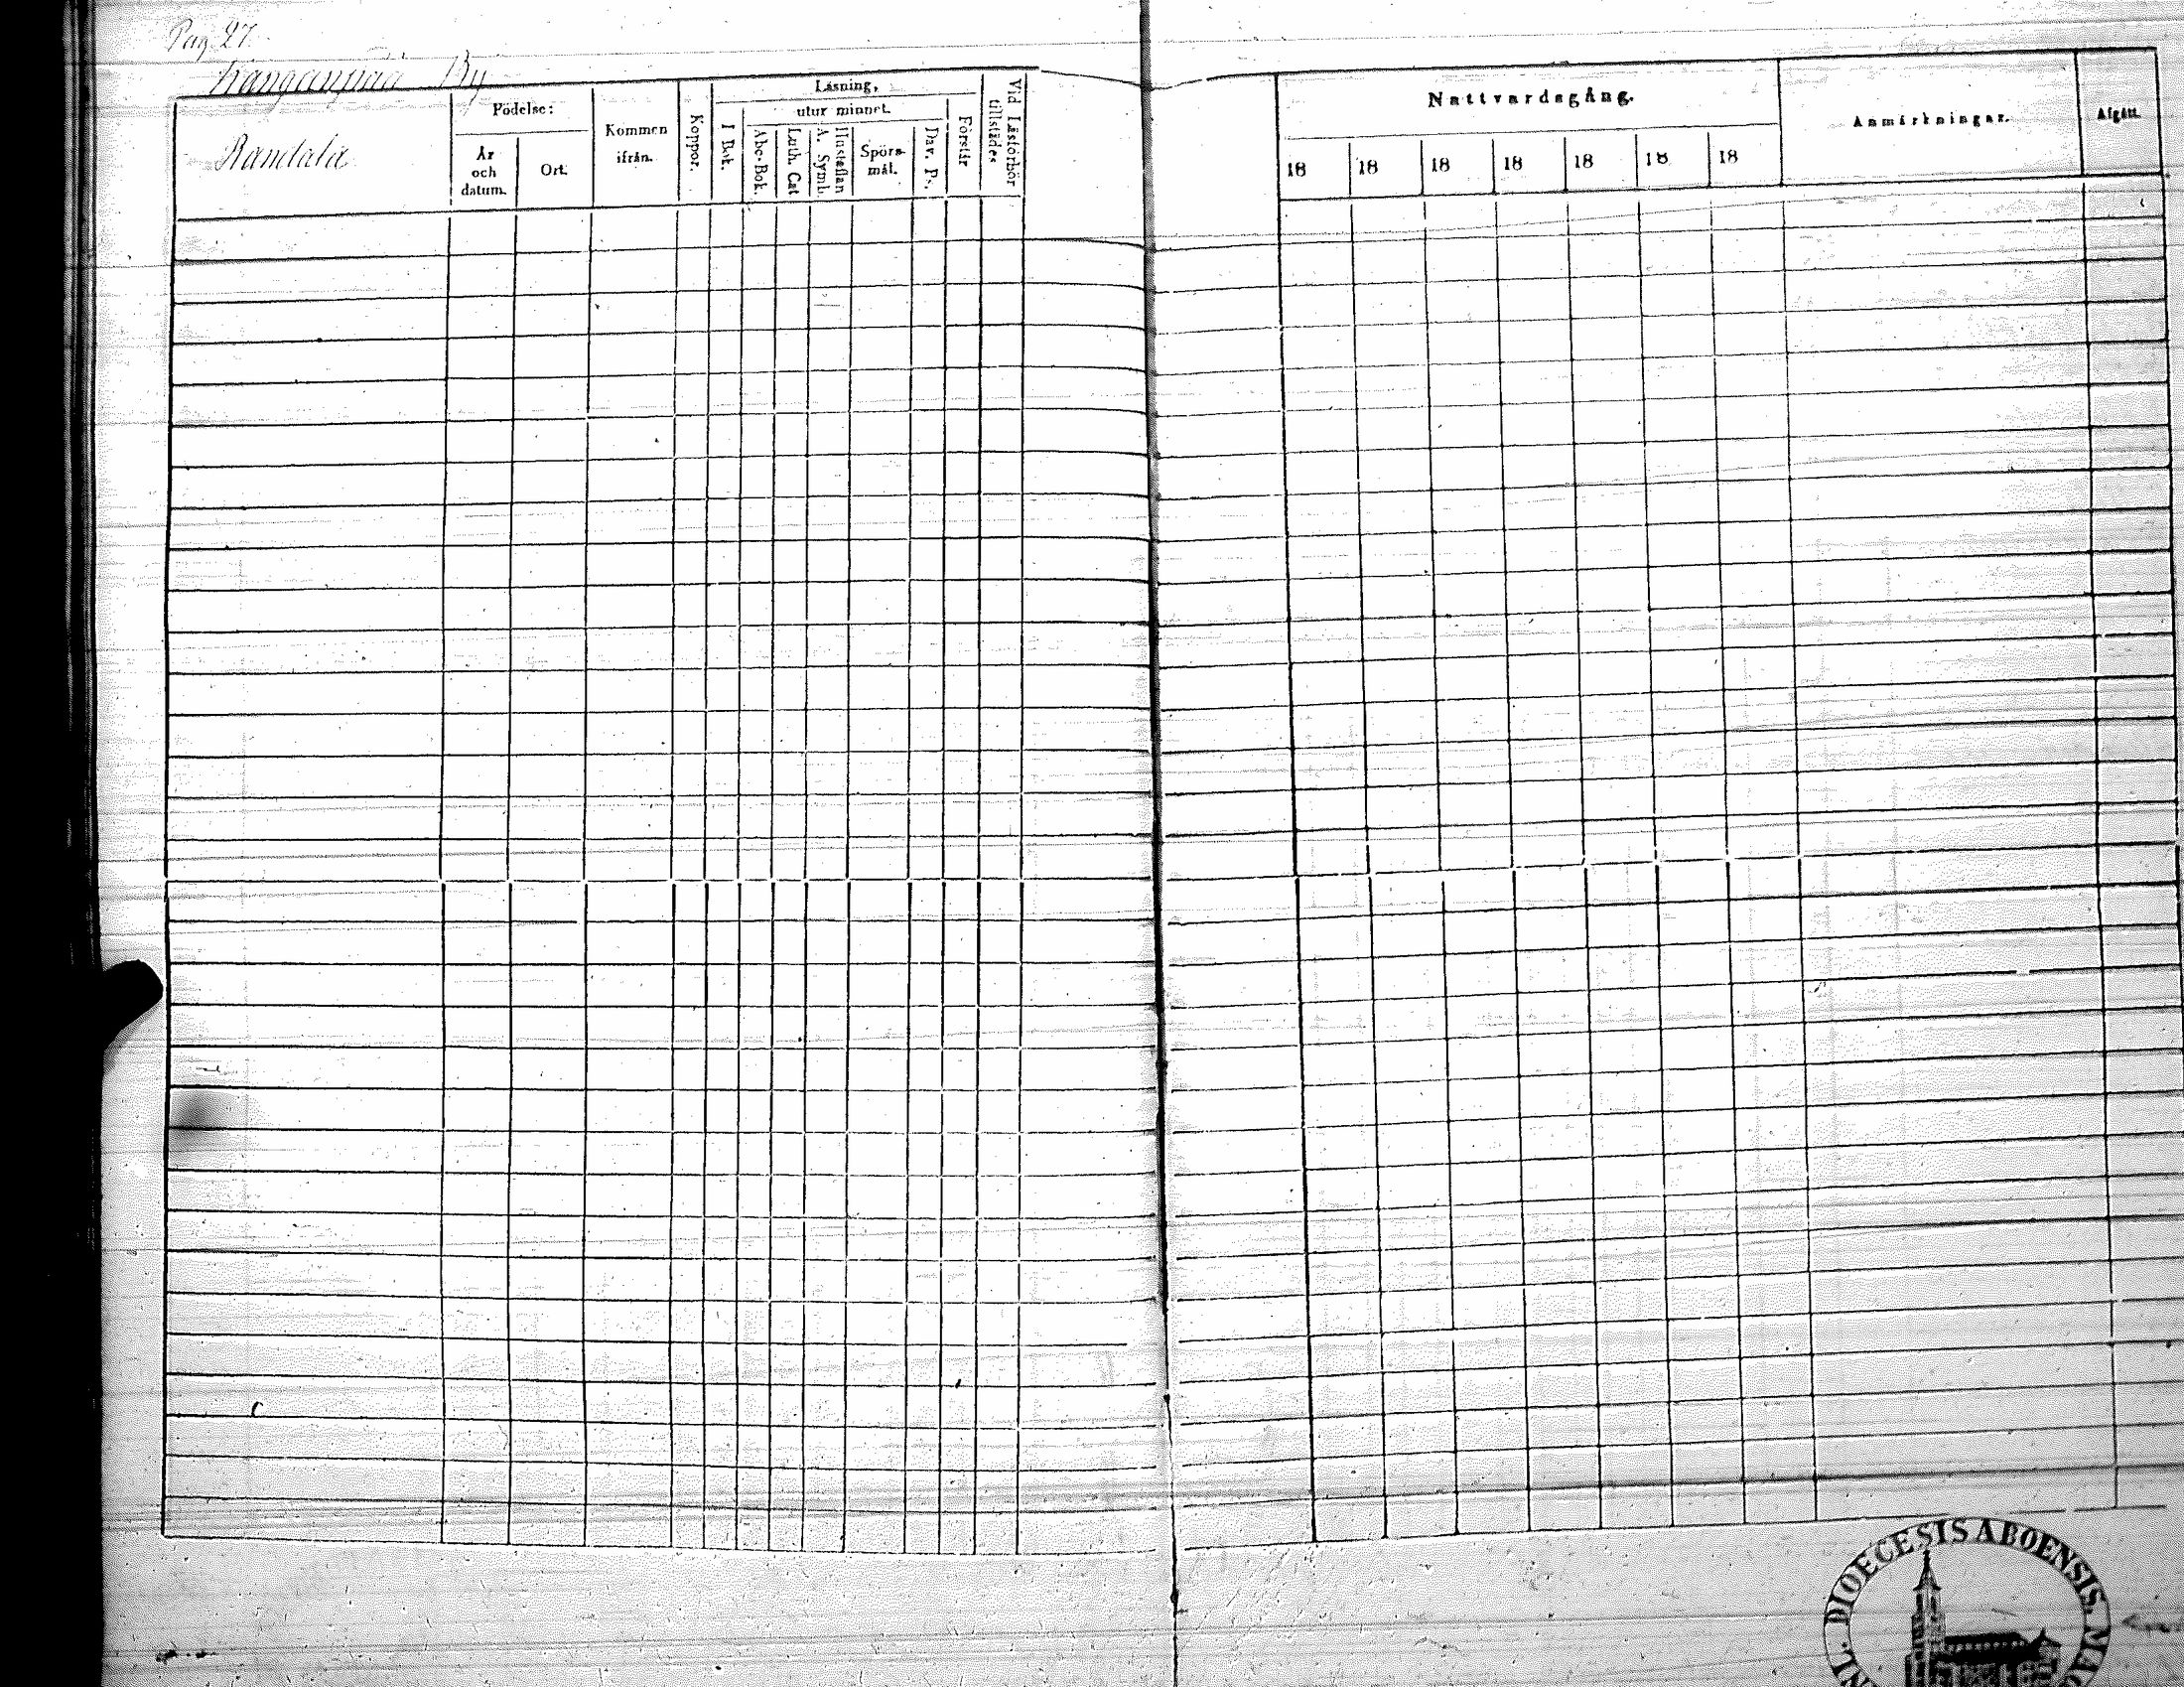 Pag 27.
Kanganpää By
Randala
Födelse:
År
och
datum.
Ort.
Kommen
ifrån.
Koppor.
Läsning,
utur minnet.
I Bok.
Abc-Bok.
Luth. Cat
A. Symb.
Hustaflan
Spörs-
mål.
Dav. Ps.
Förstår
Vid Läsförhör
tillstädes
Nattvardsgång.
18 18 18 18 18 18 18
Anmärkningar.
Afgått.
DIOECESIS ABOENSIS.